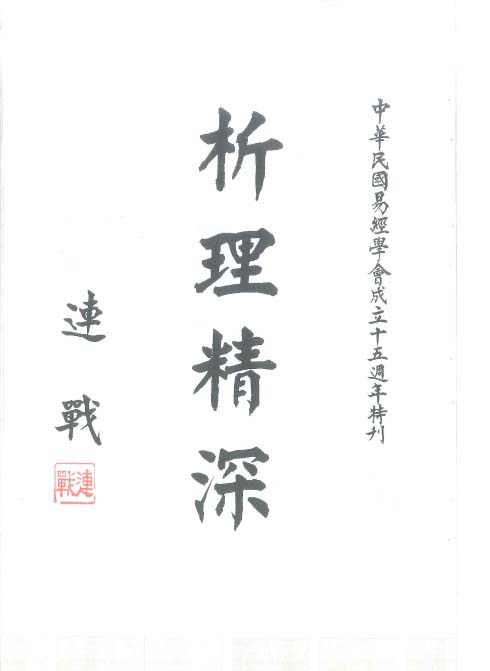 中華民國易經學會成立十五週年特刊
析理精深
連戰
連戰